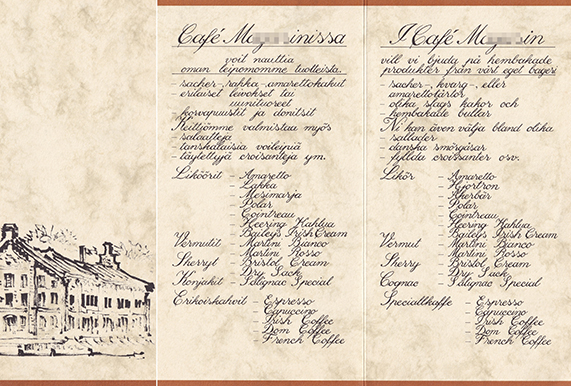 Café Ma inissa
voit nauttia
oman leipomomme tuotteista.
- sacher-, rakka-, amarettokakut
erilaiset leivokset tai
uunituoreet
korvapuustit ja donitsit
Keittiömme valmistaa myös
- salaatteja
- tanskalaisia voileipiä
- täytettyjä croisanteja ym.
Liköörit - Amaretto
- Lakka
- Mesimarja
- Polar
- Cointreau
- Heering Kahlua
- Baileys Irish Cream
Vermutit - Martini Bianco
- Martini Rosso
Sherryt - Bristol Cream
- Dry Sack
Konjakit - Polignac Special
Erikoiskahvit - Espresso
- Capuccino
- Irish Coffee
- Dom Coffee
- French Coffee
I Café Ma in
vill vi bjuda på hembakade
produkter från vårt eget bageri
- sacher-, kvarg-, eller
amarettotårtor
- olika slags kakor och
hembakade bullar
Ni kan även välja bland olika
- sallader
- danska smörgåsar
- fyllda croissanter osv.
Likör - Amaretto
- Hjortron
- Åkerbär
- Polar
- Cointreau
- Heering Kahlua
- Baileys Irish Cream
Vermut - Martini Bianco
- Martini Rosso
Sherry - Bristol Cream
- Dry Sack
Cognac - Polignac Special
Specialkaffe - Espresso
- Capuccino
- Irish Coffee
- Dom Coffee
- French Coffee